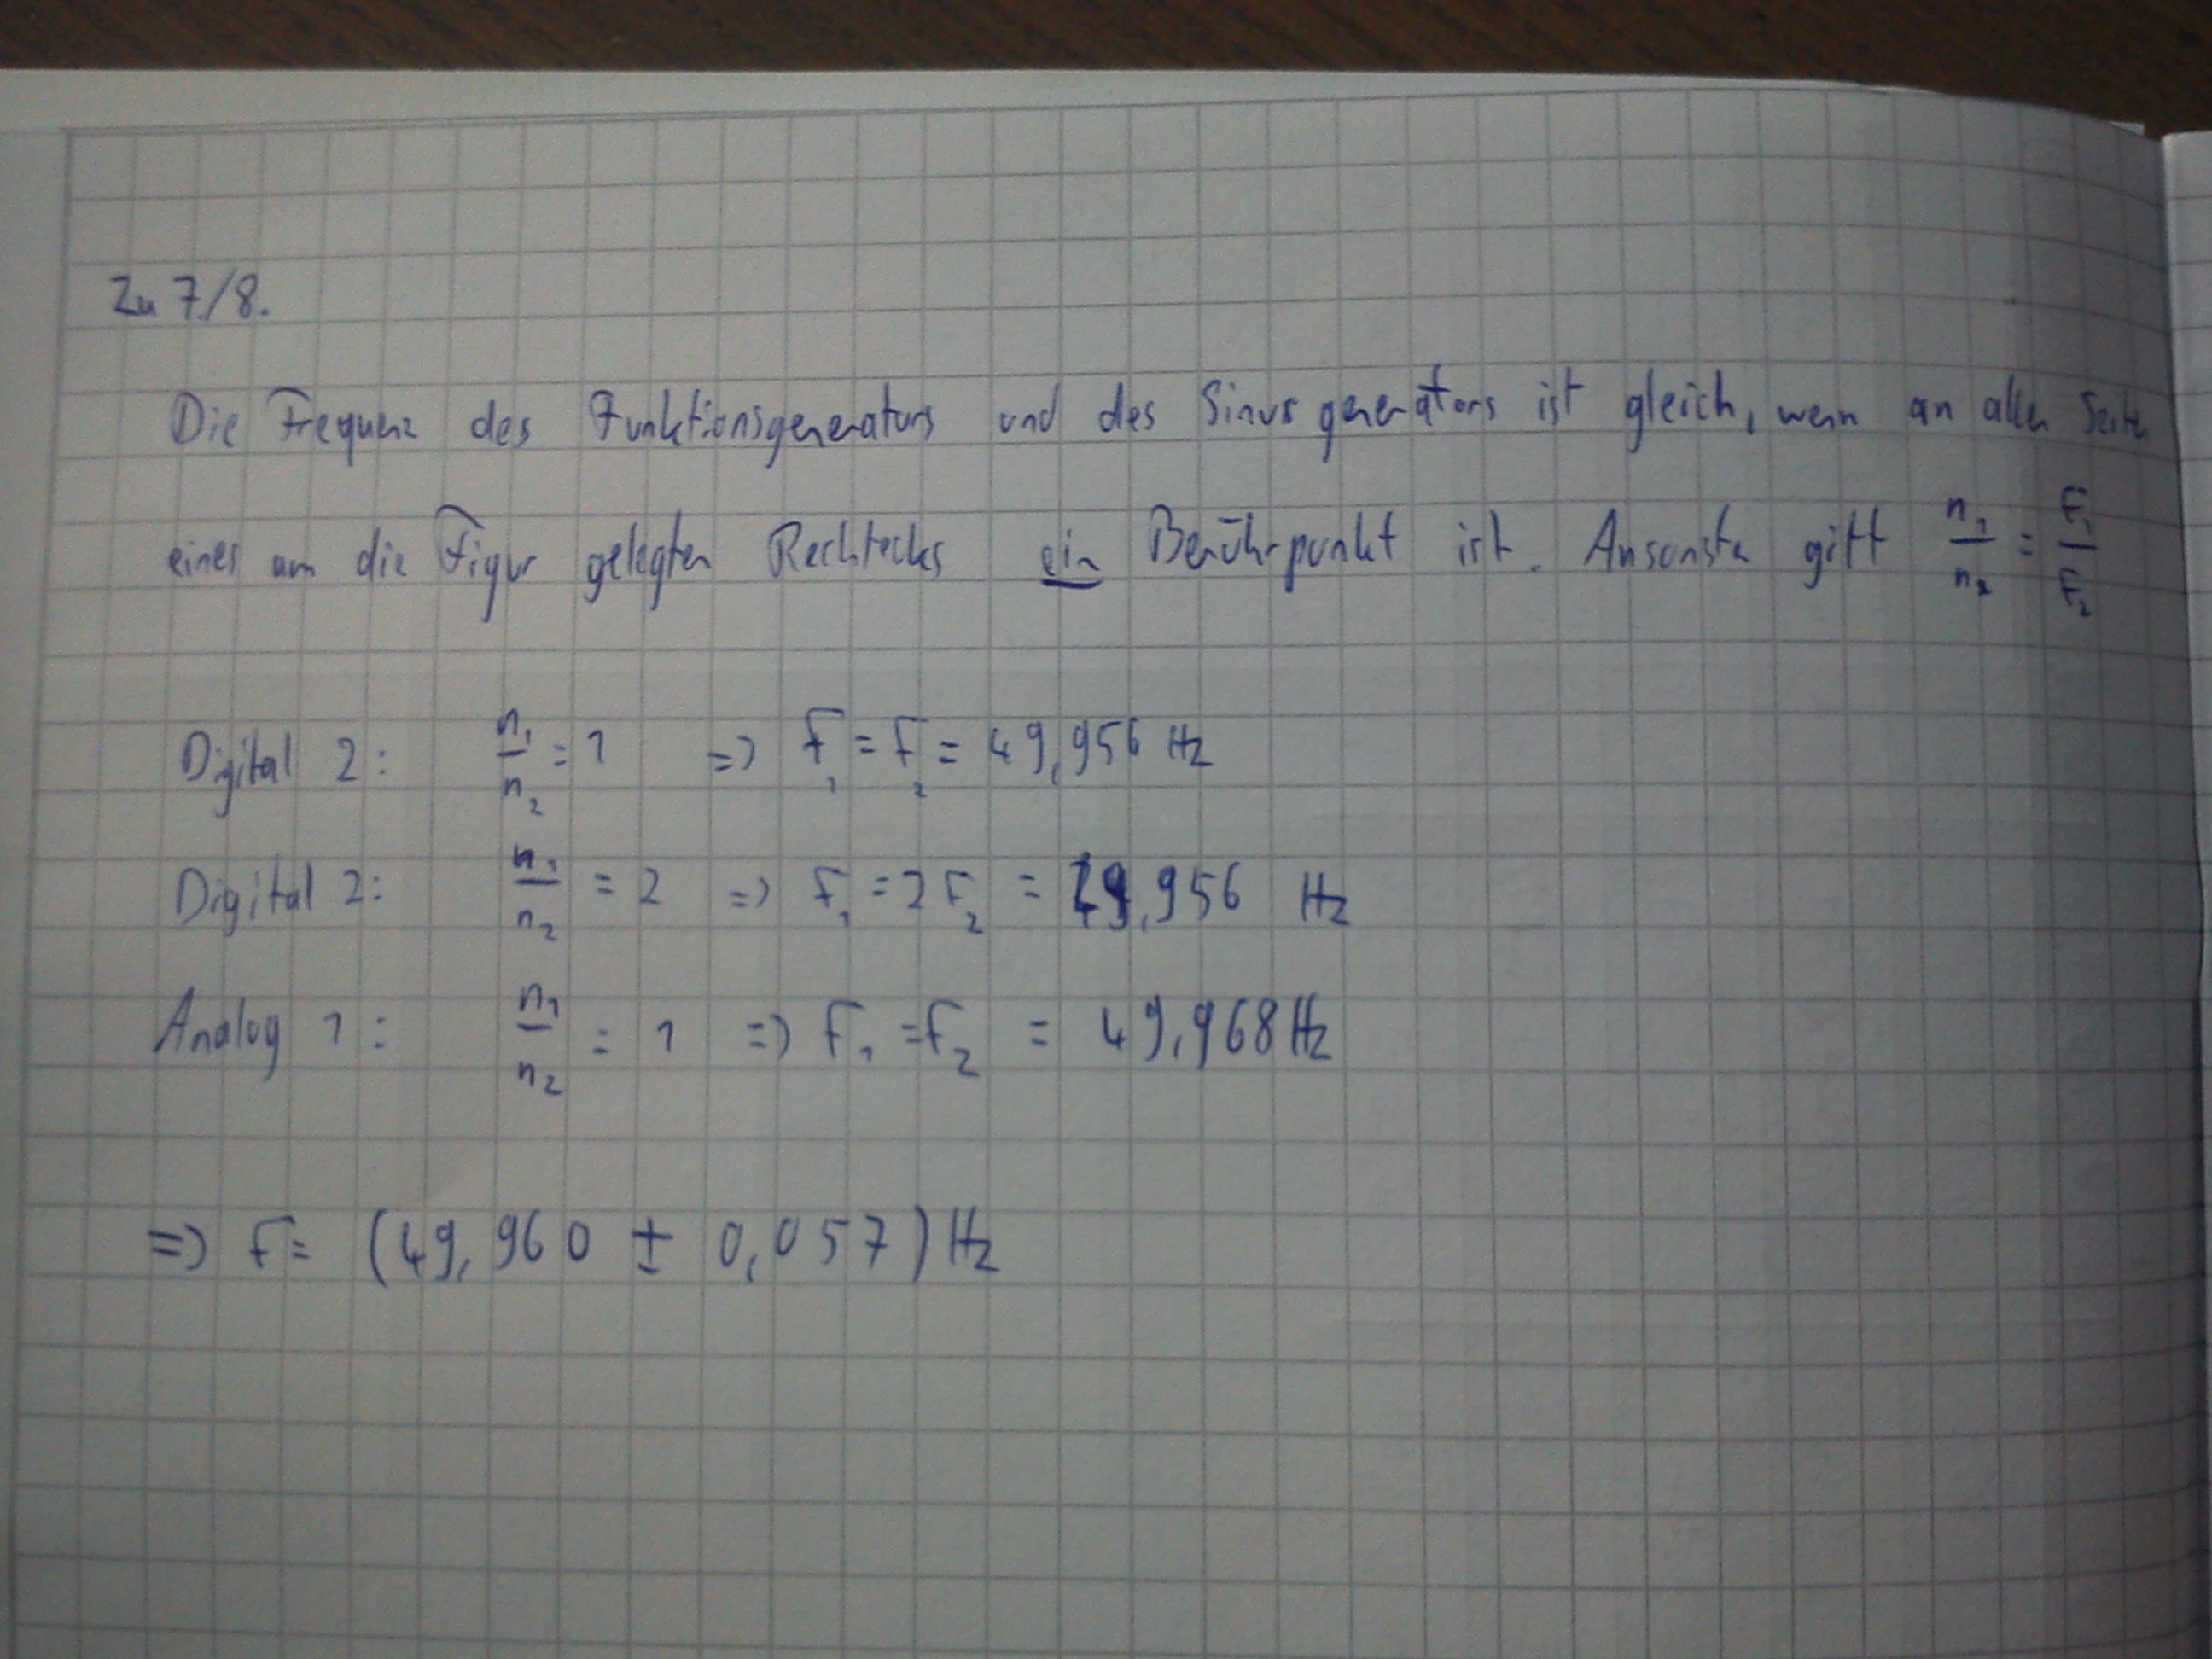 Zu 7./8.
Die Frequenz des Funktionsgenerators und des Sinusgenerators ist gleich, wenn an allen Seiten
eines um die Figur gelegten Rechtecks ein Berührpunkt ist. Ansonsten gilt n₁/n₂ = F₁/F₂
Digital 2: n₁/n₂ = 1 => F₁ = F₂ = 49,956 Hz
Digital 2: n₁/n₂ = 2 => F₁ = 2 F₂ = 49,956 Hz
Analog 1: n₁/n₂ = 1 => F₁ = F₂ = 49,968 Hz
=> F = (49,960 ± 0,057) Hz